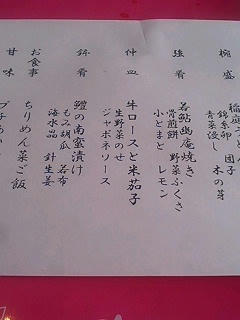 椀盛
稲庭うどん
錦糸卵 団子
青菜浸し 木の芽
強肴
若鮎幽庵焼き
骨煎餅 野菜ふくさ
小とまと レモン
中皿
牛ロースと米茄子
生野菜のせ
ジャポネソース
鉢肴
鱧の南蛮漬け
もみ胡瓜 若布
海水晶 針生姜
お食事
ちりめん菜ご飯
甘味